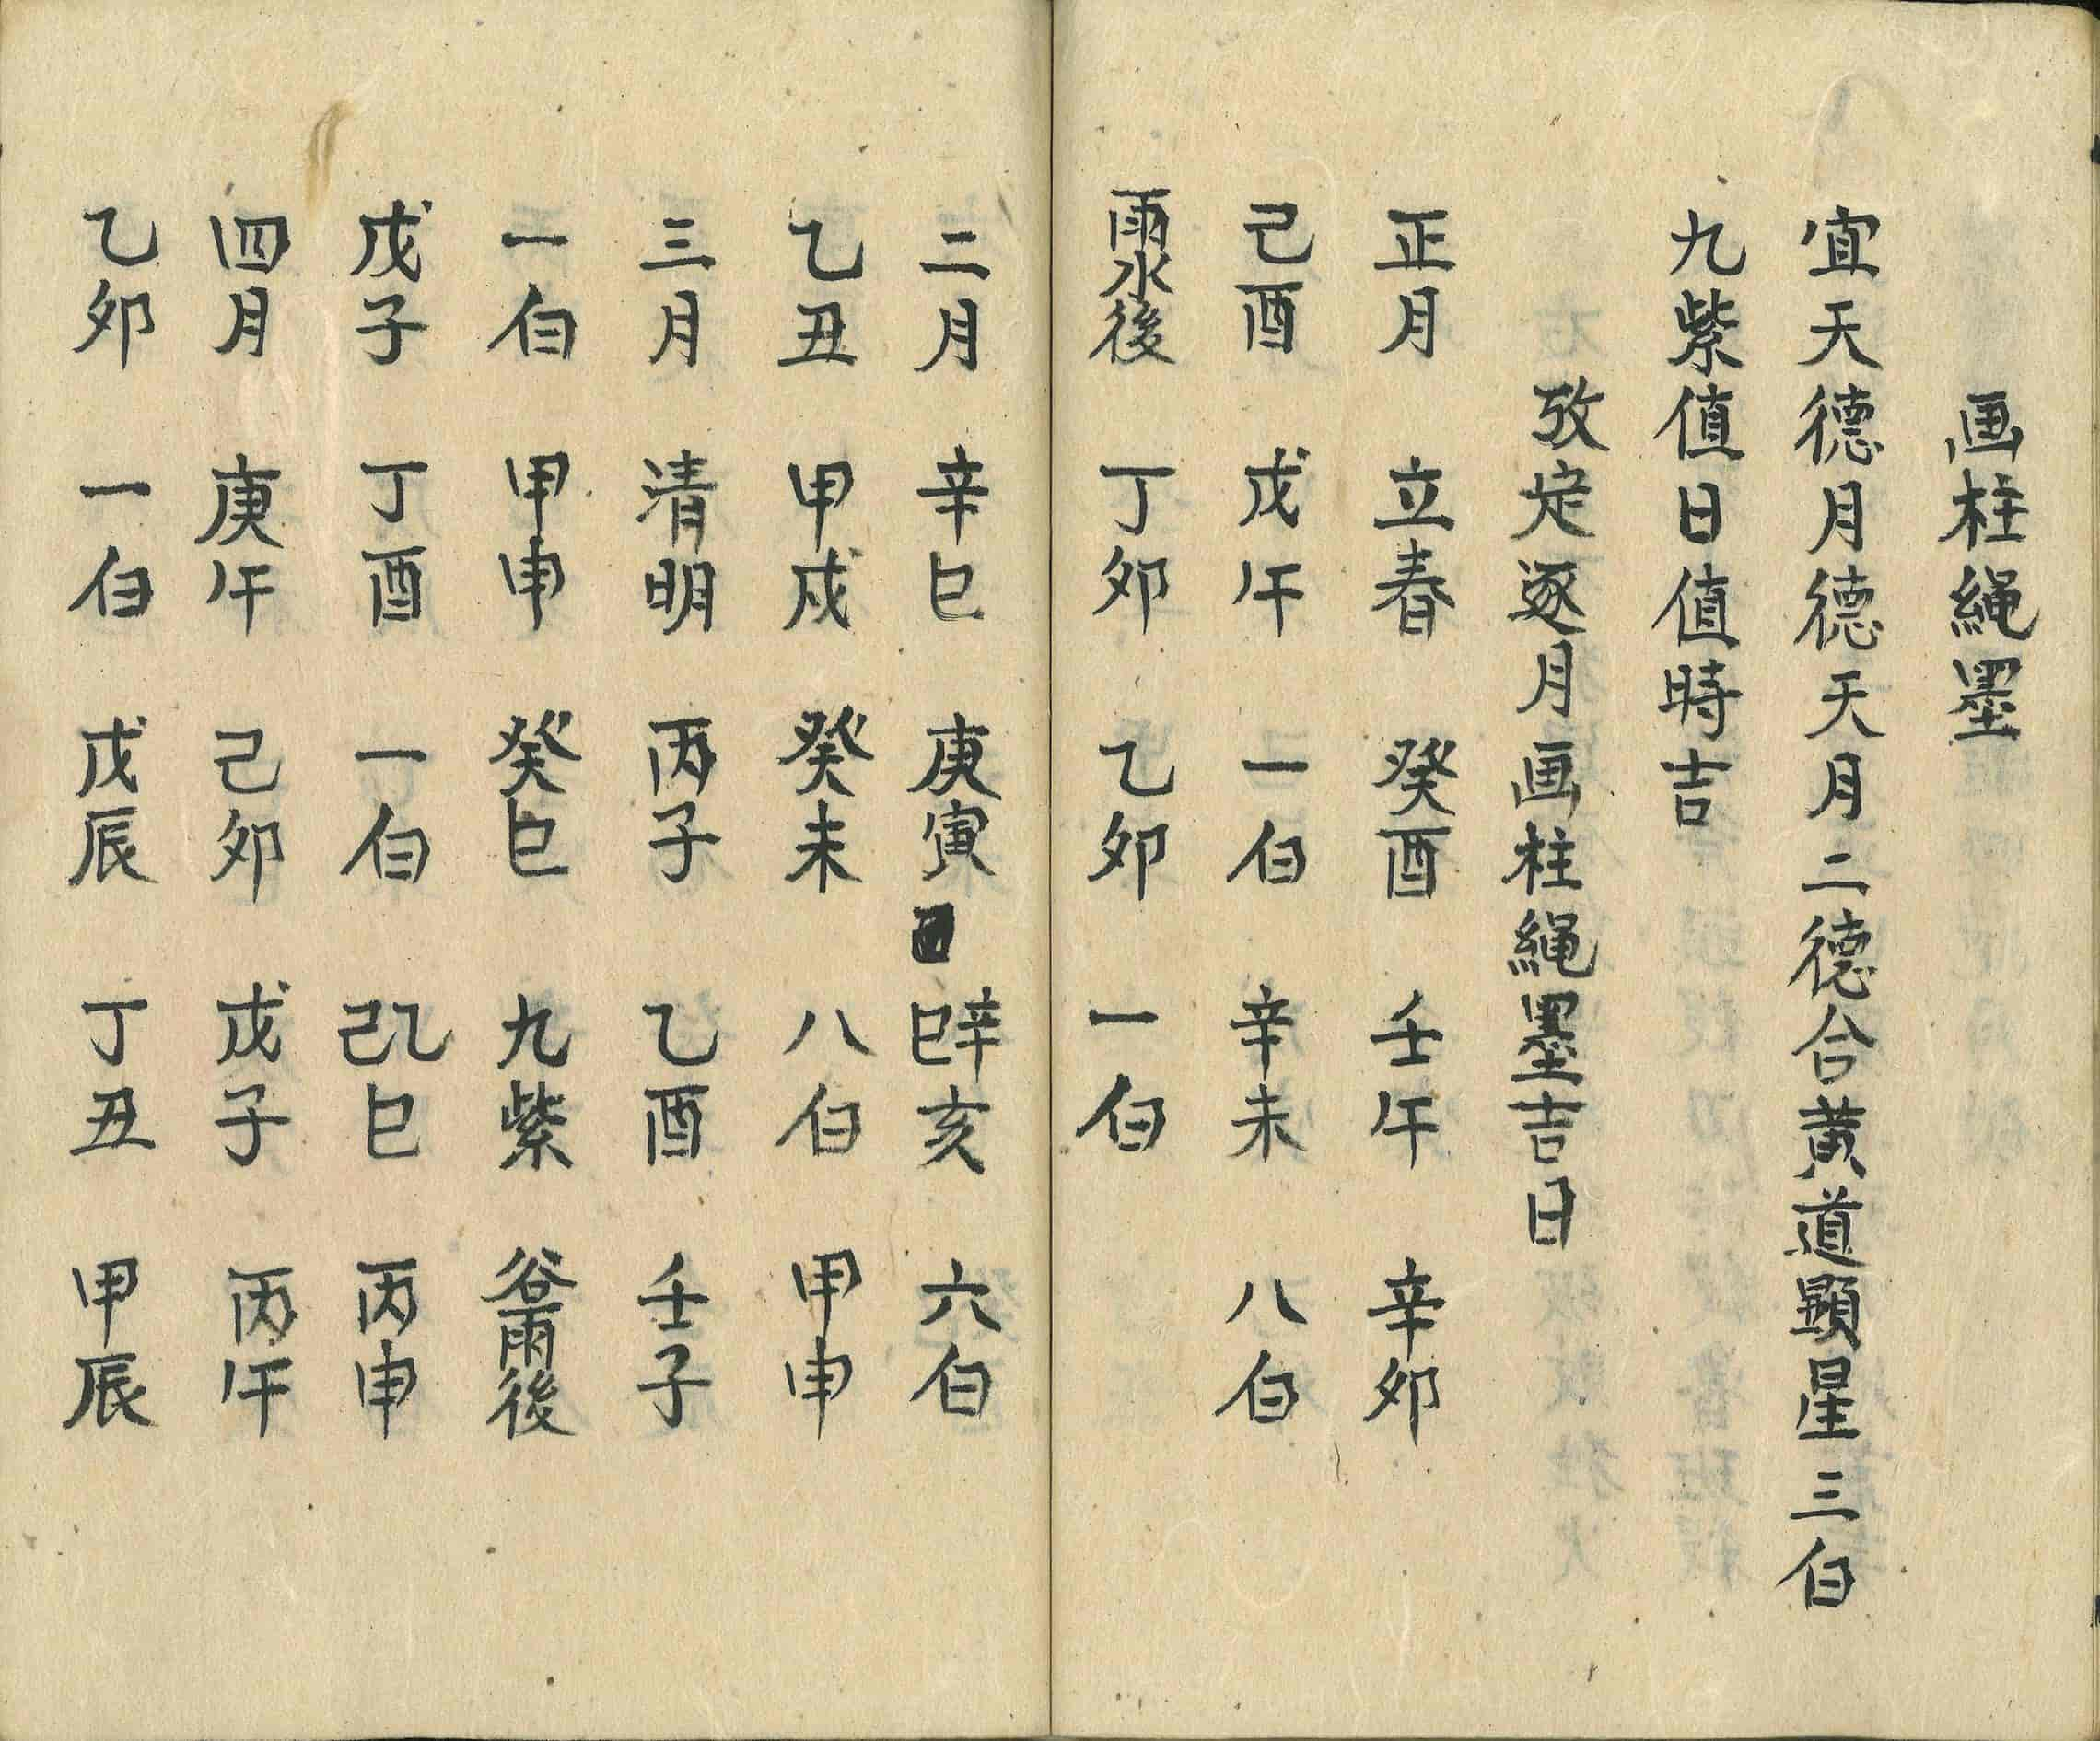 画柱繩墨
宜天德月德天月二德合黄道顕星三白
九紫值日值時吉
攷定逐月画柱繩墨吉日
正月 立春 癸酉 壬午 辛卯
己酉 戊午 一白 辛未 八白
雨水後 丁卯 乙卯 一白
二月 辛巳 庚寅 辛亥 六白
乙丑 甲戌 癸未 八白 甲申
三月 清明 丙子 乙酉 壬子
一白 甲申 癸巳 九紫 谷雨後
戊子 丁酉 一白 乙巳 丙申
四月 庚午 己卯 戊子 丙午
乙卯 一白 戊辰 丁丑 甲辰